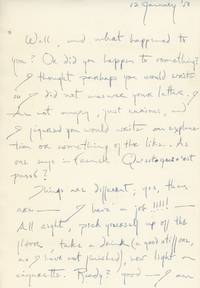 12 January '50
Well, and what happened to
you? Or did you happen to something?
I thought perhaps you would write
I did not answer your letter. I
am not angry, just curious, and
I figured you would write an explana-
tion or something of the like. As
one says in French
Things are different; yes, they
are — I have a job!!!!! —
All right, pick yourself up off the
floor, take a drink (a good stiff one,
as I have not finished), now light a
cigarette. Ready? good — I am